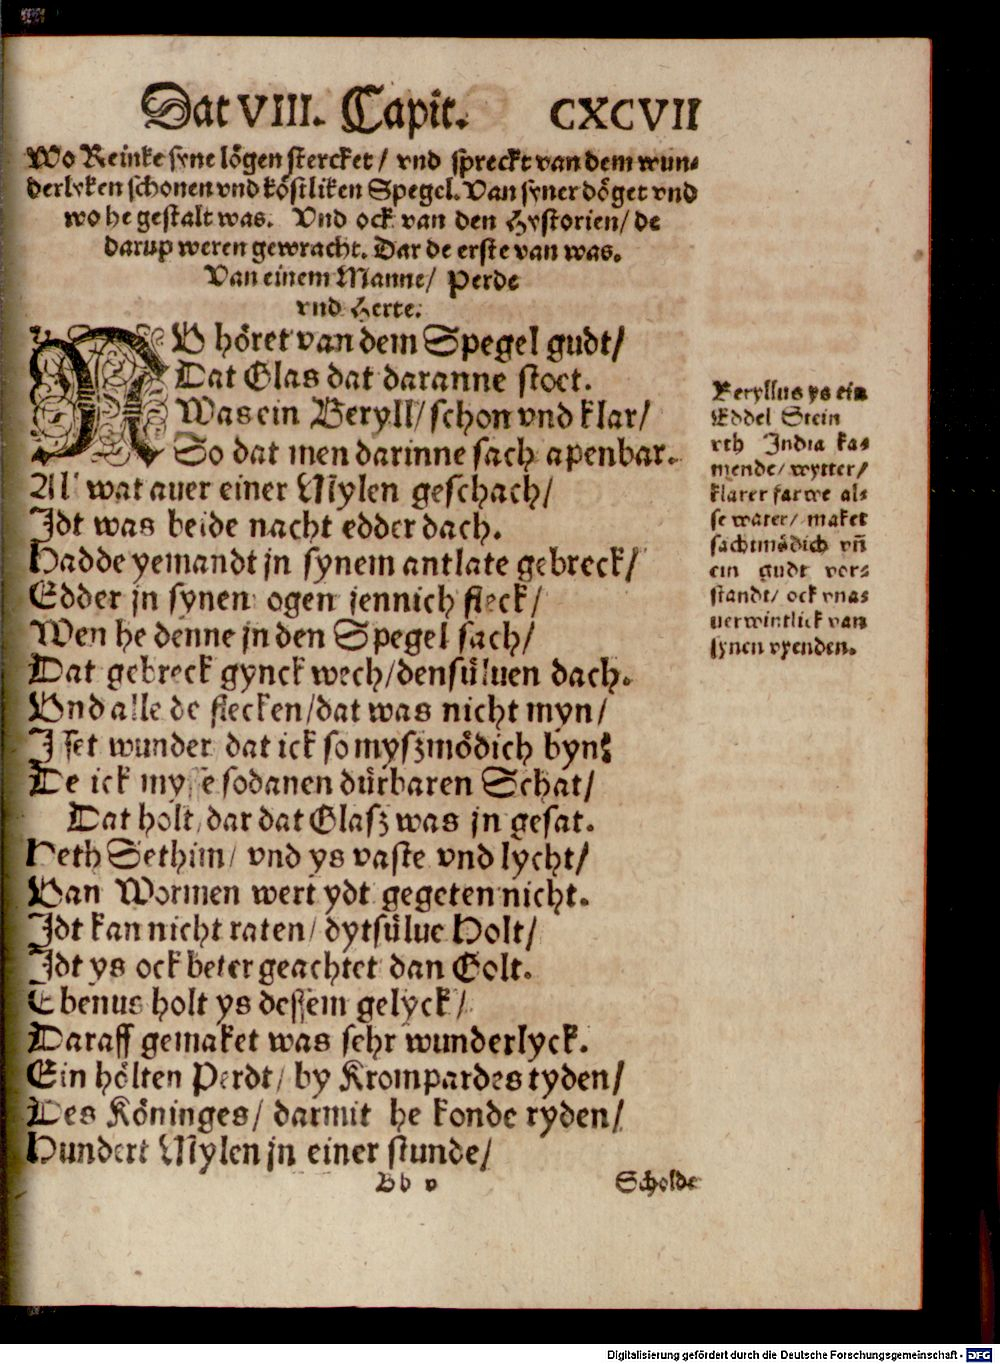 Dat VIII. Capit. CXCVII
Wo Reinke syne lögen stercket / vnd spreckt van dem wun-
derlyken schonen vnd köstliken Spegel. Van syner döget vnd
wo he gestalt was. Vnd ock van den Hystorien / de
darup weren gewracht. Dar de erste van was.
Van einem Manne / Perde
vnd Herte.
NV höret van dem Spegel gudt /
Dat Glas dat daranne stoet.
Was ein Beryll / schon vnd klar /
So dat men darinne sach apenbar.
All wat auer einer Mylen geschach /
Idt was beide nacht edder dach.
Hadde yemandt jn synem antlate gebreck /
Edder jn synen ogen jennich fleck /
Wen he denne jn den Spegel sach /
Dat gebreck gynck wech / densüluen dach.
Vnd alle de flecken / dat was nicht myn /
J set wunder dat ick so myszmödich byn?
De ick mysse sodanen dürbaren Schat /
Dat holt / dar dat Glasz was jn gesat.
Heth Sethim / vnd ys vaste vnd lycht /
Van Wormen wert ydt gegeten nicht.
Idt kan nicht raten / dytsülue Holt /
Idt ys ock beter geachtet dan Golt.
Ebenus holt ys dessem gelyck /
Daraff gemaket was sehr wunderlyck.
Ein hölten Perdt / by Krompardes tyden /
Des Köninges / darmit he konde ryden /
Hundert Mylen jn einer stunde /
Bb v Scholde
Beryllus ys ein
Eddel Stein
vth India ka-
mende / wytter /
klarer farwe al-
se water / maket
sachtmödich vñ
ein gudt vor-
standt / ock vnas
uerwintlick van
synen vyenden.
Digitalisierung gefördert durch die Deutsche Forschungsgemeinschaft - DFG